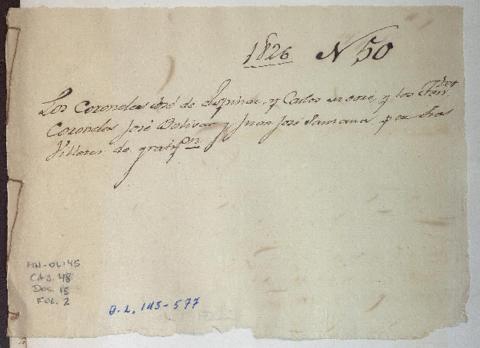 1826 N 50
Los Coroneles José de Espinar, y Carlos y los Ten.
Coroneles José Bolivar y Juan José Santana, por
Villetes de gratif.n
MN-OL145
CAJ. 48
DOC. 15
FOL. 2
O.L. 145-577